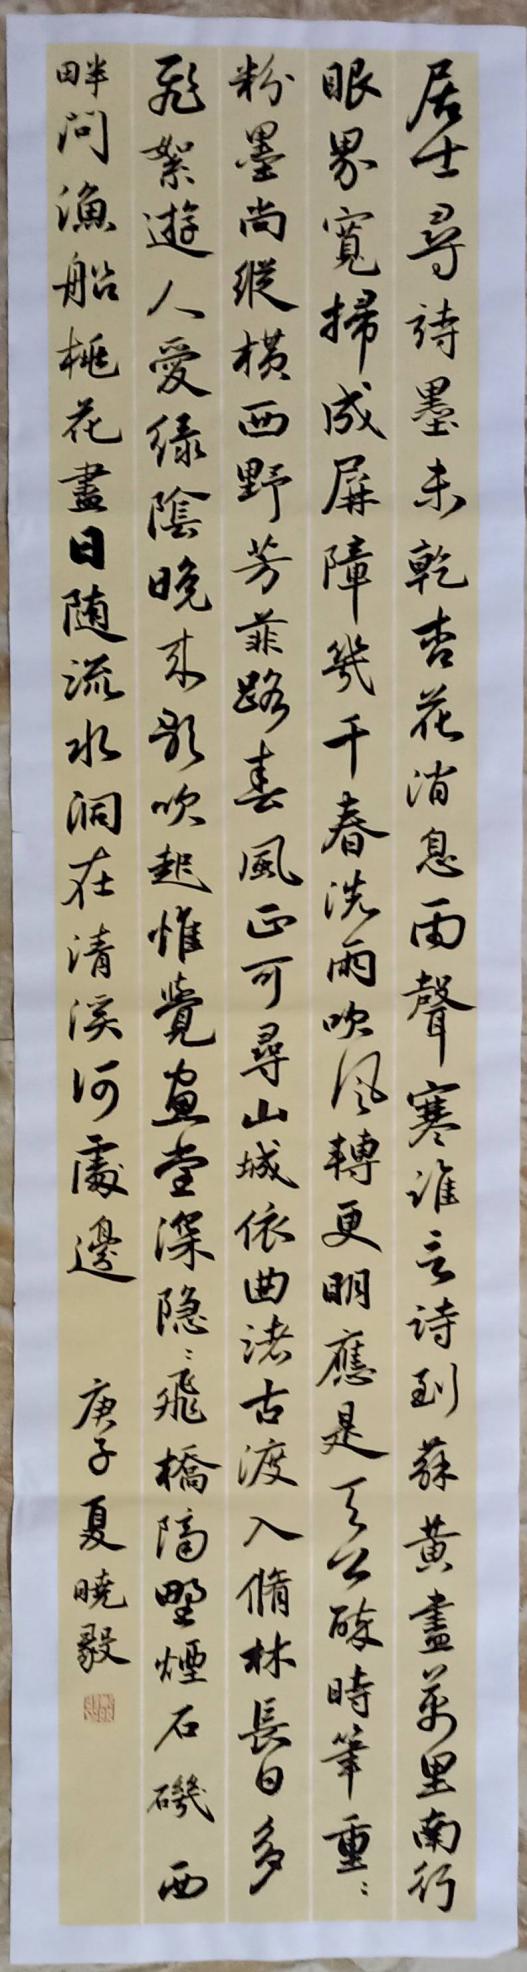 居士尋詩墨未乾杏花消息雨聲寒誰言詩到蘇黃盡萬里南行
眼界寬掃成屏障幾千春洗雨吹風轉更明應是天公醉時筆重〻
粉墨尚縱橫西野芳菲路春風正可尋山城依曲渚古渡入脩林長日多
飛絮遊人愛綠陰晚來歌吹起惟覺畫堂深隐〻飛橋隔野煙石磯西
畔問漁船桃花盡日随流水洞在清溪何處邊
庚子夏曉毅